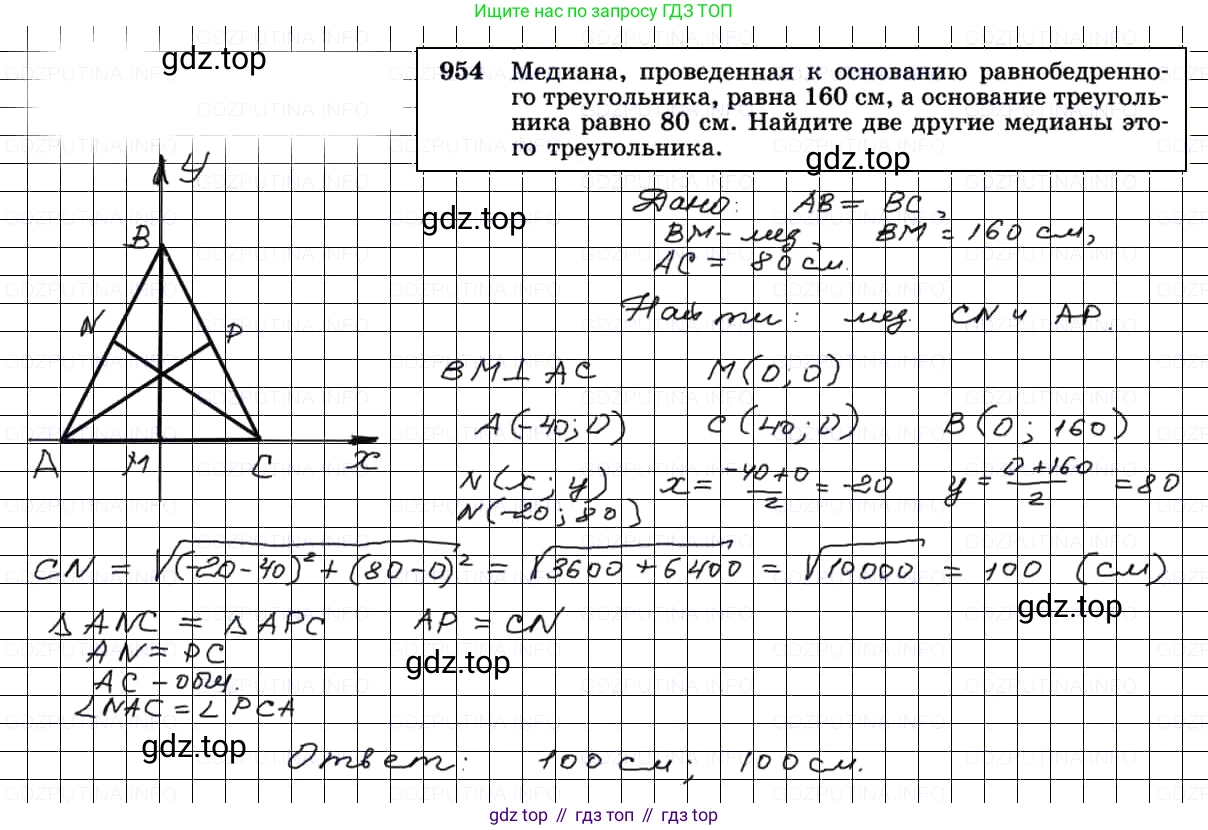 Ищите нас по запросу ГДЗ ТОП
gdz.top
954 Медиана, проведенная к основанию равнобедренно-
го треугольника, равна 160 см, а основание треуголь-
ника равно 80 см. Найдите две другие медианы это-
го треугольника.
gdz.top
gdz.top
Дано: AB = BC,
BM – мед, BM = 160 см,
AC = 80 см.
Найти: мед. CN и AP.
y
B
N
P
A
M
C
x
BM ⊥ AC M(0; 0)
A(-40; 0) C(40; 0) B(0; 160)
N(x; y) x = (-40+0)/2 = -20 y = (0+160)/2 = 80
N(-20; 80)
CN = √((-20-40)² + (80-0)²) = √(3600 + 6400) = √10000 = 100 (см)
gdz.top
△ ANC = △ APC AP = CN
AN = PC
gdz.top
AC – общ.
∠NAC = ∠PCA
gdz.top
Ответ: 100 см; 100 см.
gdz top // гдз топ // gdz top
GDZPUTINA.INFO